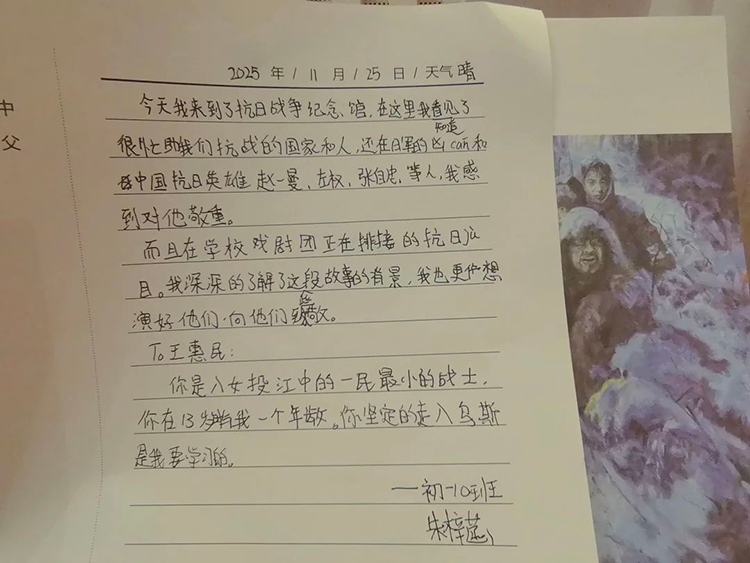 中
父
2025 年 / 11 月 / 25 日 / 天气 晴
今天我来到了抗日战争纪念馆,在这里我看见了
很忙助我们抗战的国家和人,还在知道日军的凶can和
中国抗日英雄赵一曼,左权,张自忠,等人,我感
到对他敬重。
而且在学校戏剧团正在排接的抗日
目。我深深的了解了这段故事的背景,我也更加想
演好他们,向他们致敬。
To王惠民:
你是八女投江中的一民最小的战士,
你在13岁 我一个年龄。你坚定的走入乌斯
是我要学习的。
——初一10班
朱梓